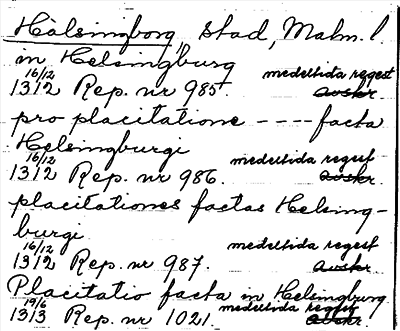 Hälsingborg, stad, Malm. l
in Helsingburg
16/12 medeltida regest
1312 Rep. nr 985. avskr.
pro placitatione ---- facta
Helsingburgi
16/12 medeltida regest
1312 Rep. nr 986. avskr.
placitationes factas Helsing-
burgi
16/12 medeltida regest
1312 Rep. nr 987. avskr.
Placitatio facta in Helsingburg
19/6 medeltida regest
1313 Rep. nr 1021. avskr.